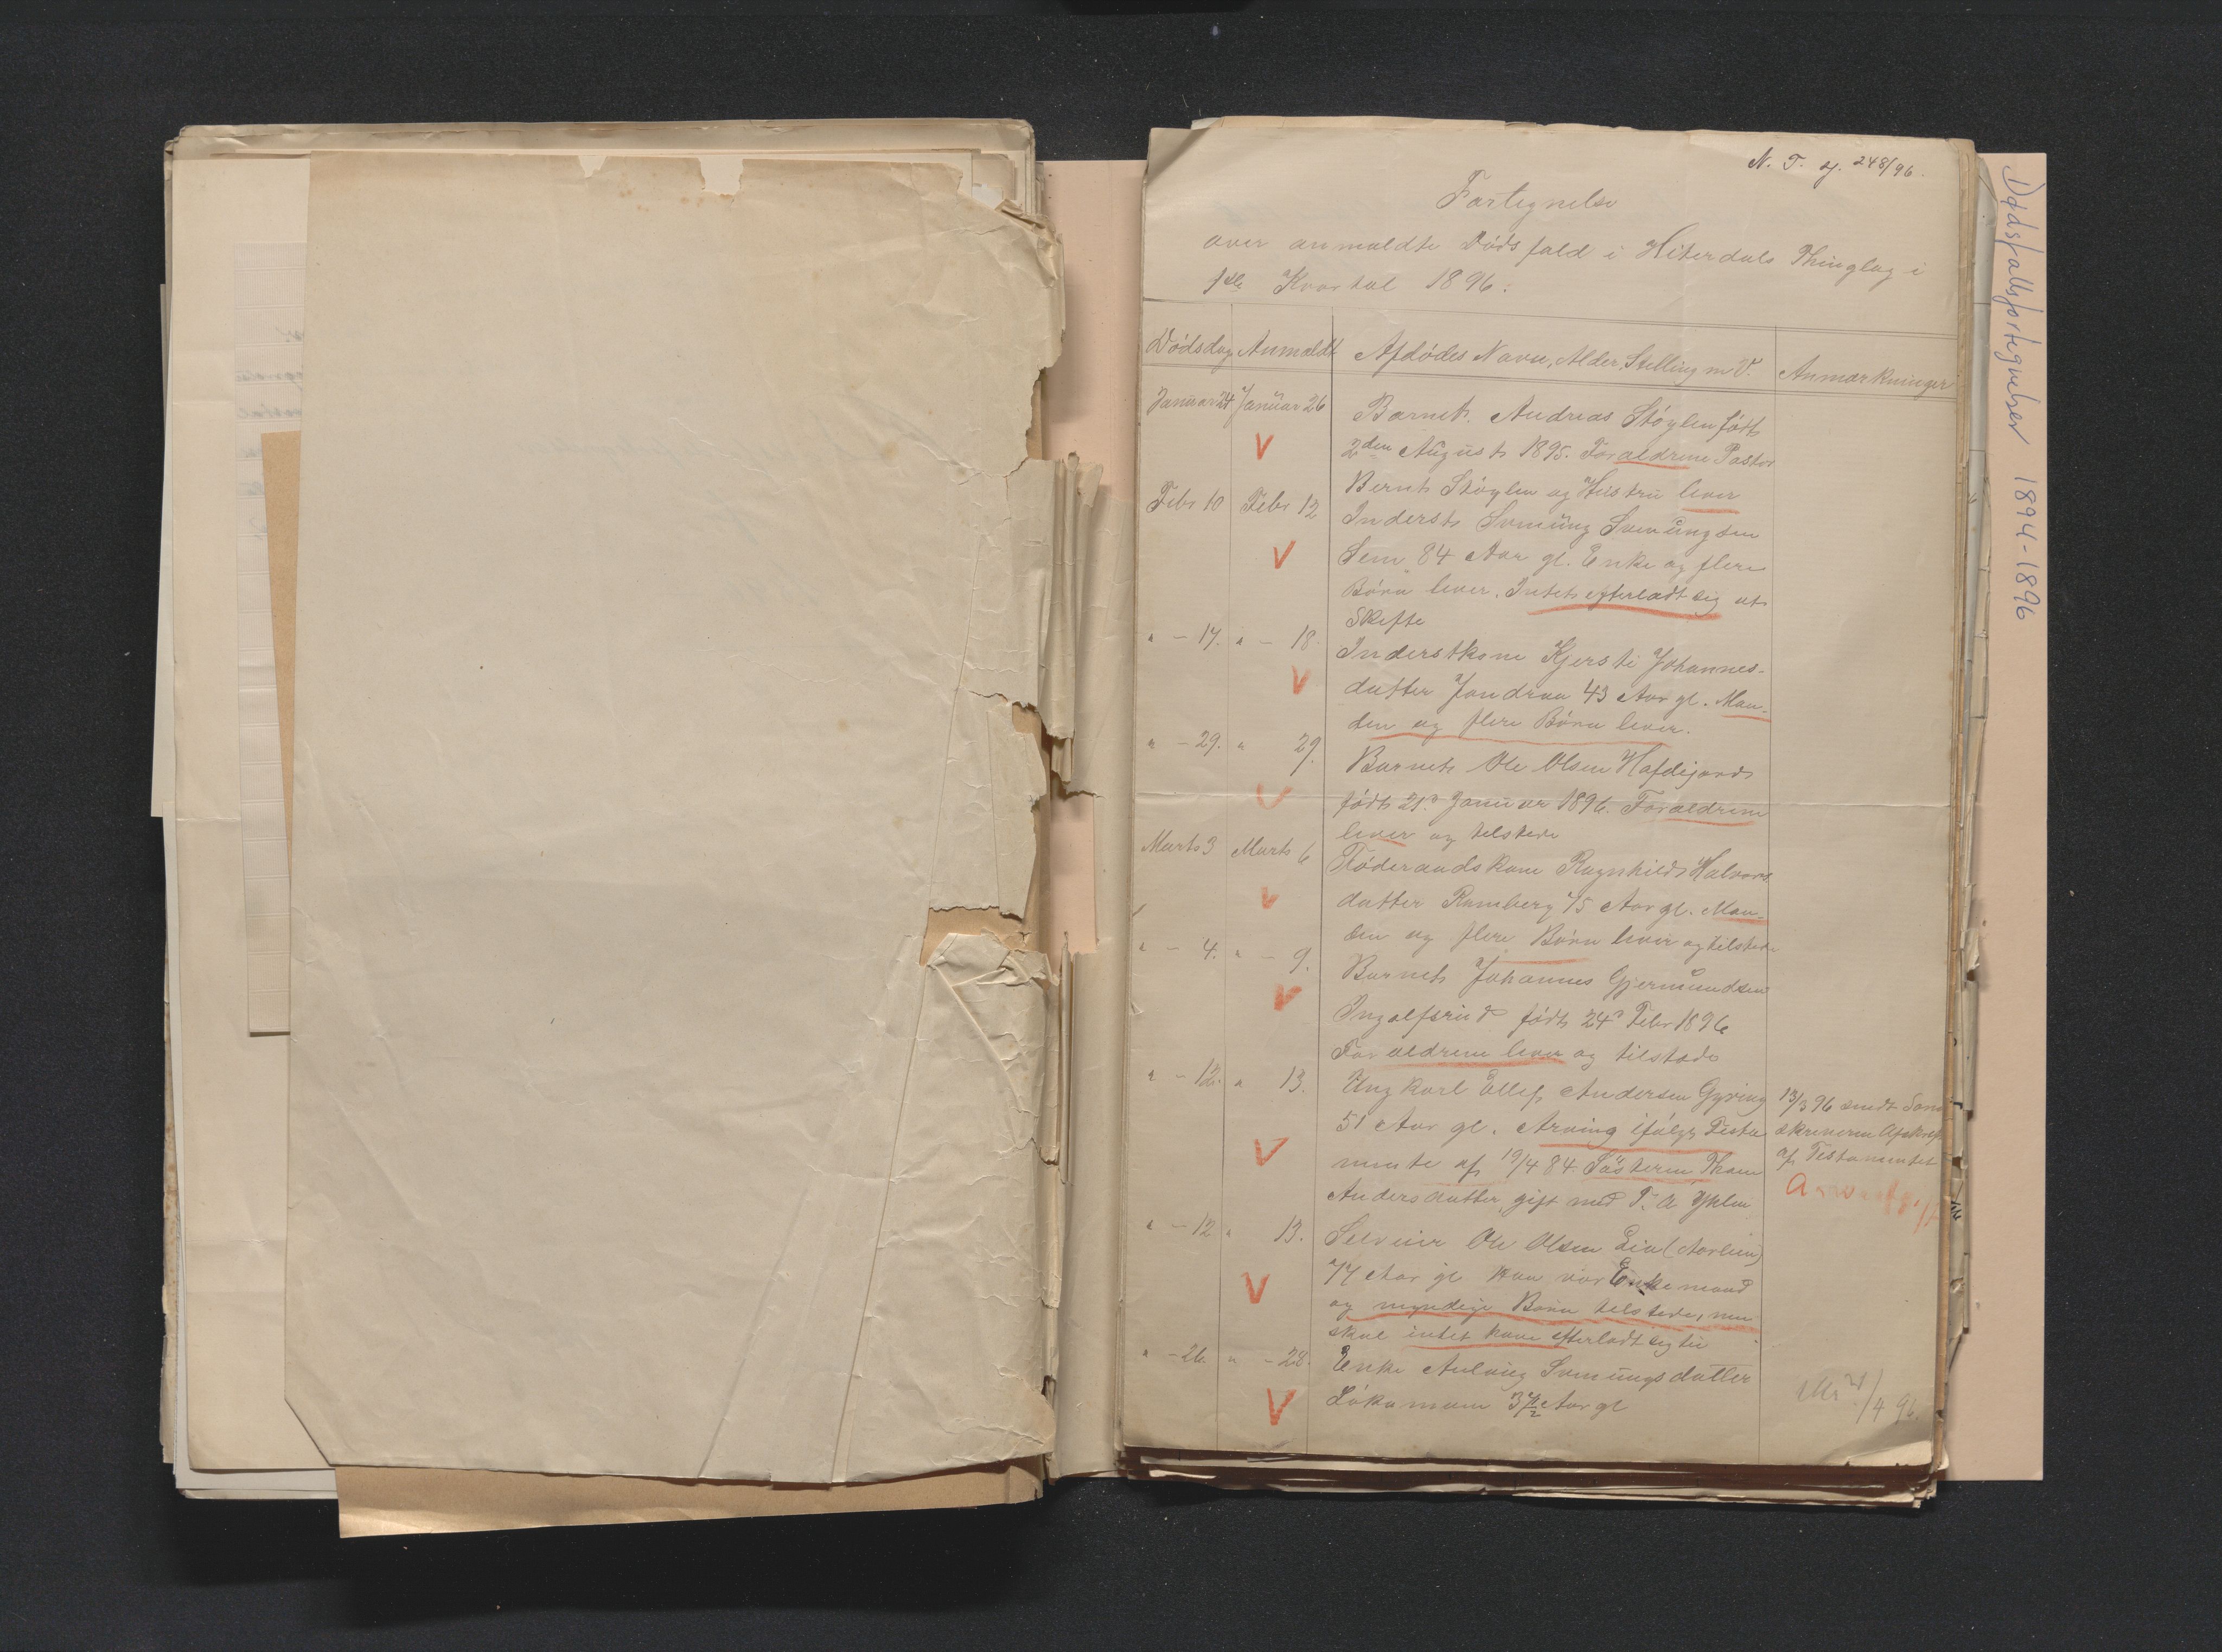 N. T. J. 248/96.
Fortegnelse
over anmeldte Dödsfald i Hiterdals Thinglag i
1ste Kvartal 1896:
Dödsdag Anmeldt Afdödes Navn, Alder, Stilling m. V. Anmærkninger
Januar 24 Januar 26 Barnet Andreas Stöylen födt
2den August 1895. Forældrene Pastor
Bernt Stöylen og Hustru lever
Febr 10 Febr 12 Inderst Svenüng Svenüngsen
Sem 84 Aar gl. Enke og flere
Börn lever. Intet efterladt sig at
Skifte
" - 17. " - 18. Inderstkone Kjersti Johannes-
datter Jondraa 43 Aar gl. Man-
den og flere Börn lever.
" - 29. " 29. Barnet Ole Olsen Hafdigard
födt 21d Januar 1896. Forældrene
lever og tilstede
Marts 3 Marts 6 Föderaadskone Ragnhild Halvors
datter Ramberg 75 Aar gl. Man-
den og flere Börn lever og tilstede
" - 4. " - 9. Barnet Johannes Gjermundsen
Ingolfsrud födt 24d Febr 1896
Forældrene lever og tilstede
" - 12. " 13. Ungkarl Ellef Andersen Gyring
51 Aar gl. Arving ifölge Testa
mente af 19/4 84. Sösteren Thone
Andersdatter, gift med T. A
13/3 96 sendt Soren
skriveren Afskrift
af Testamentet
" - 12 " 13. Selveier Ole Olsen Lia (Aarlien)
77 Aar gl han var Enkemand
og myndige Börn tilstede, men
skal intet have efterladt sig til
" - 26. " - 28. Enke Anlaug Svenungsdatter
Lökamoen 37 1/2 Aar gl
21/4 96.
Dødsfallsfortegnelser 1894-1896